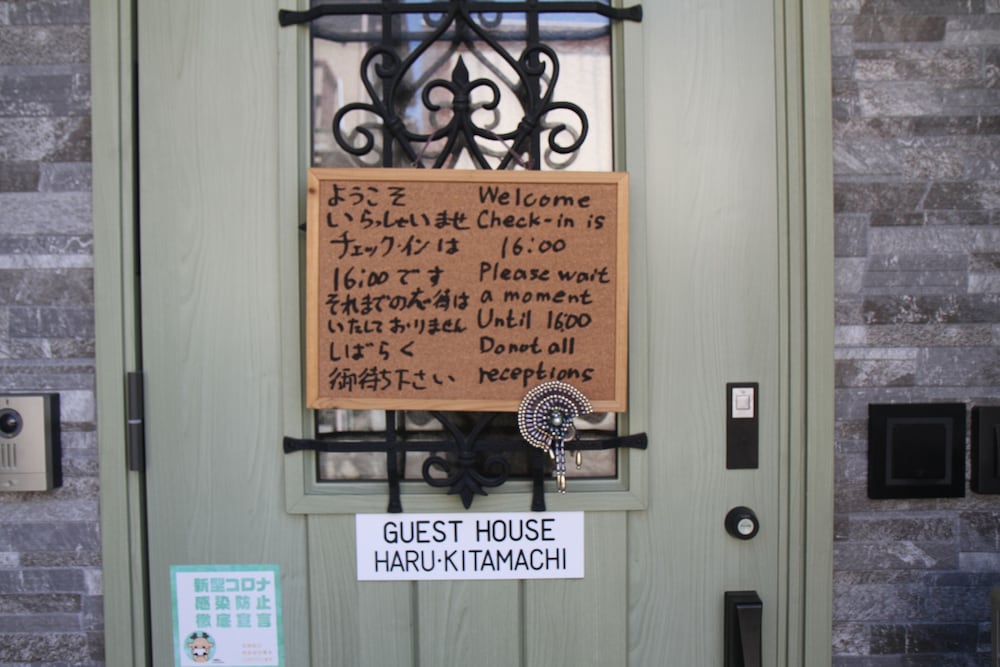 ようこそ
いらっしゃいませ
チェックインは
16:00です
それまでの応待は
いたしておりません
しばらく
御待ち下さい
Welcome
Check-in is
16:00
Please wait
a moment
Until 16:00
Donot all
receptions
GUEST HOUSE
HARU·KITAMACHI
新型コロナ
感染防止
徹底宣言